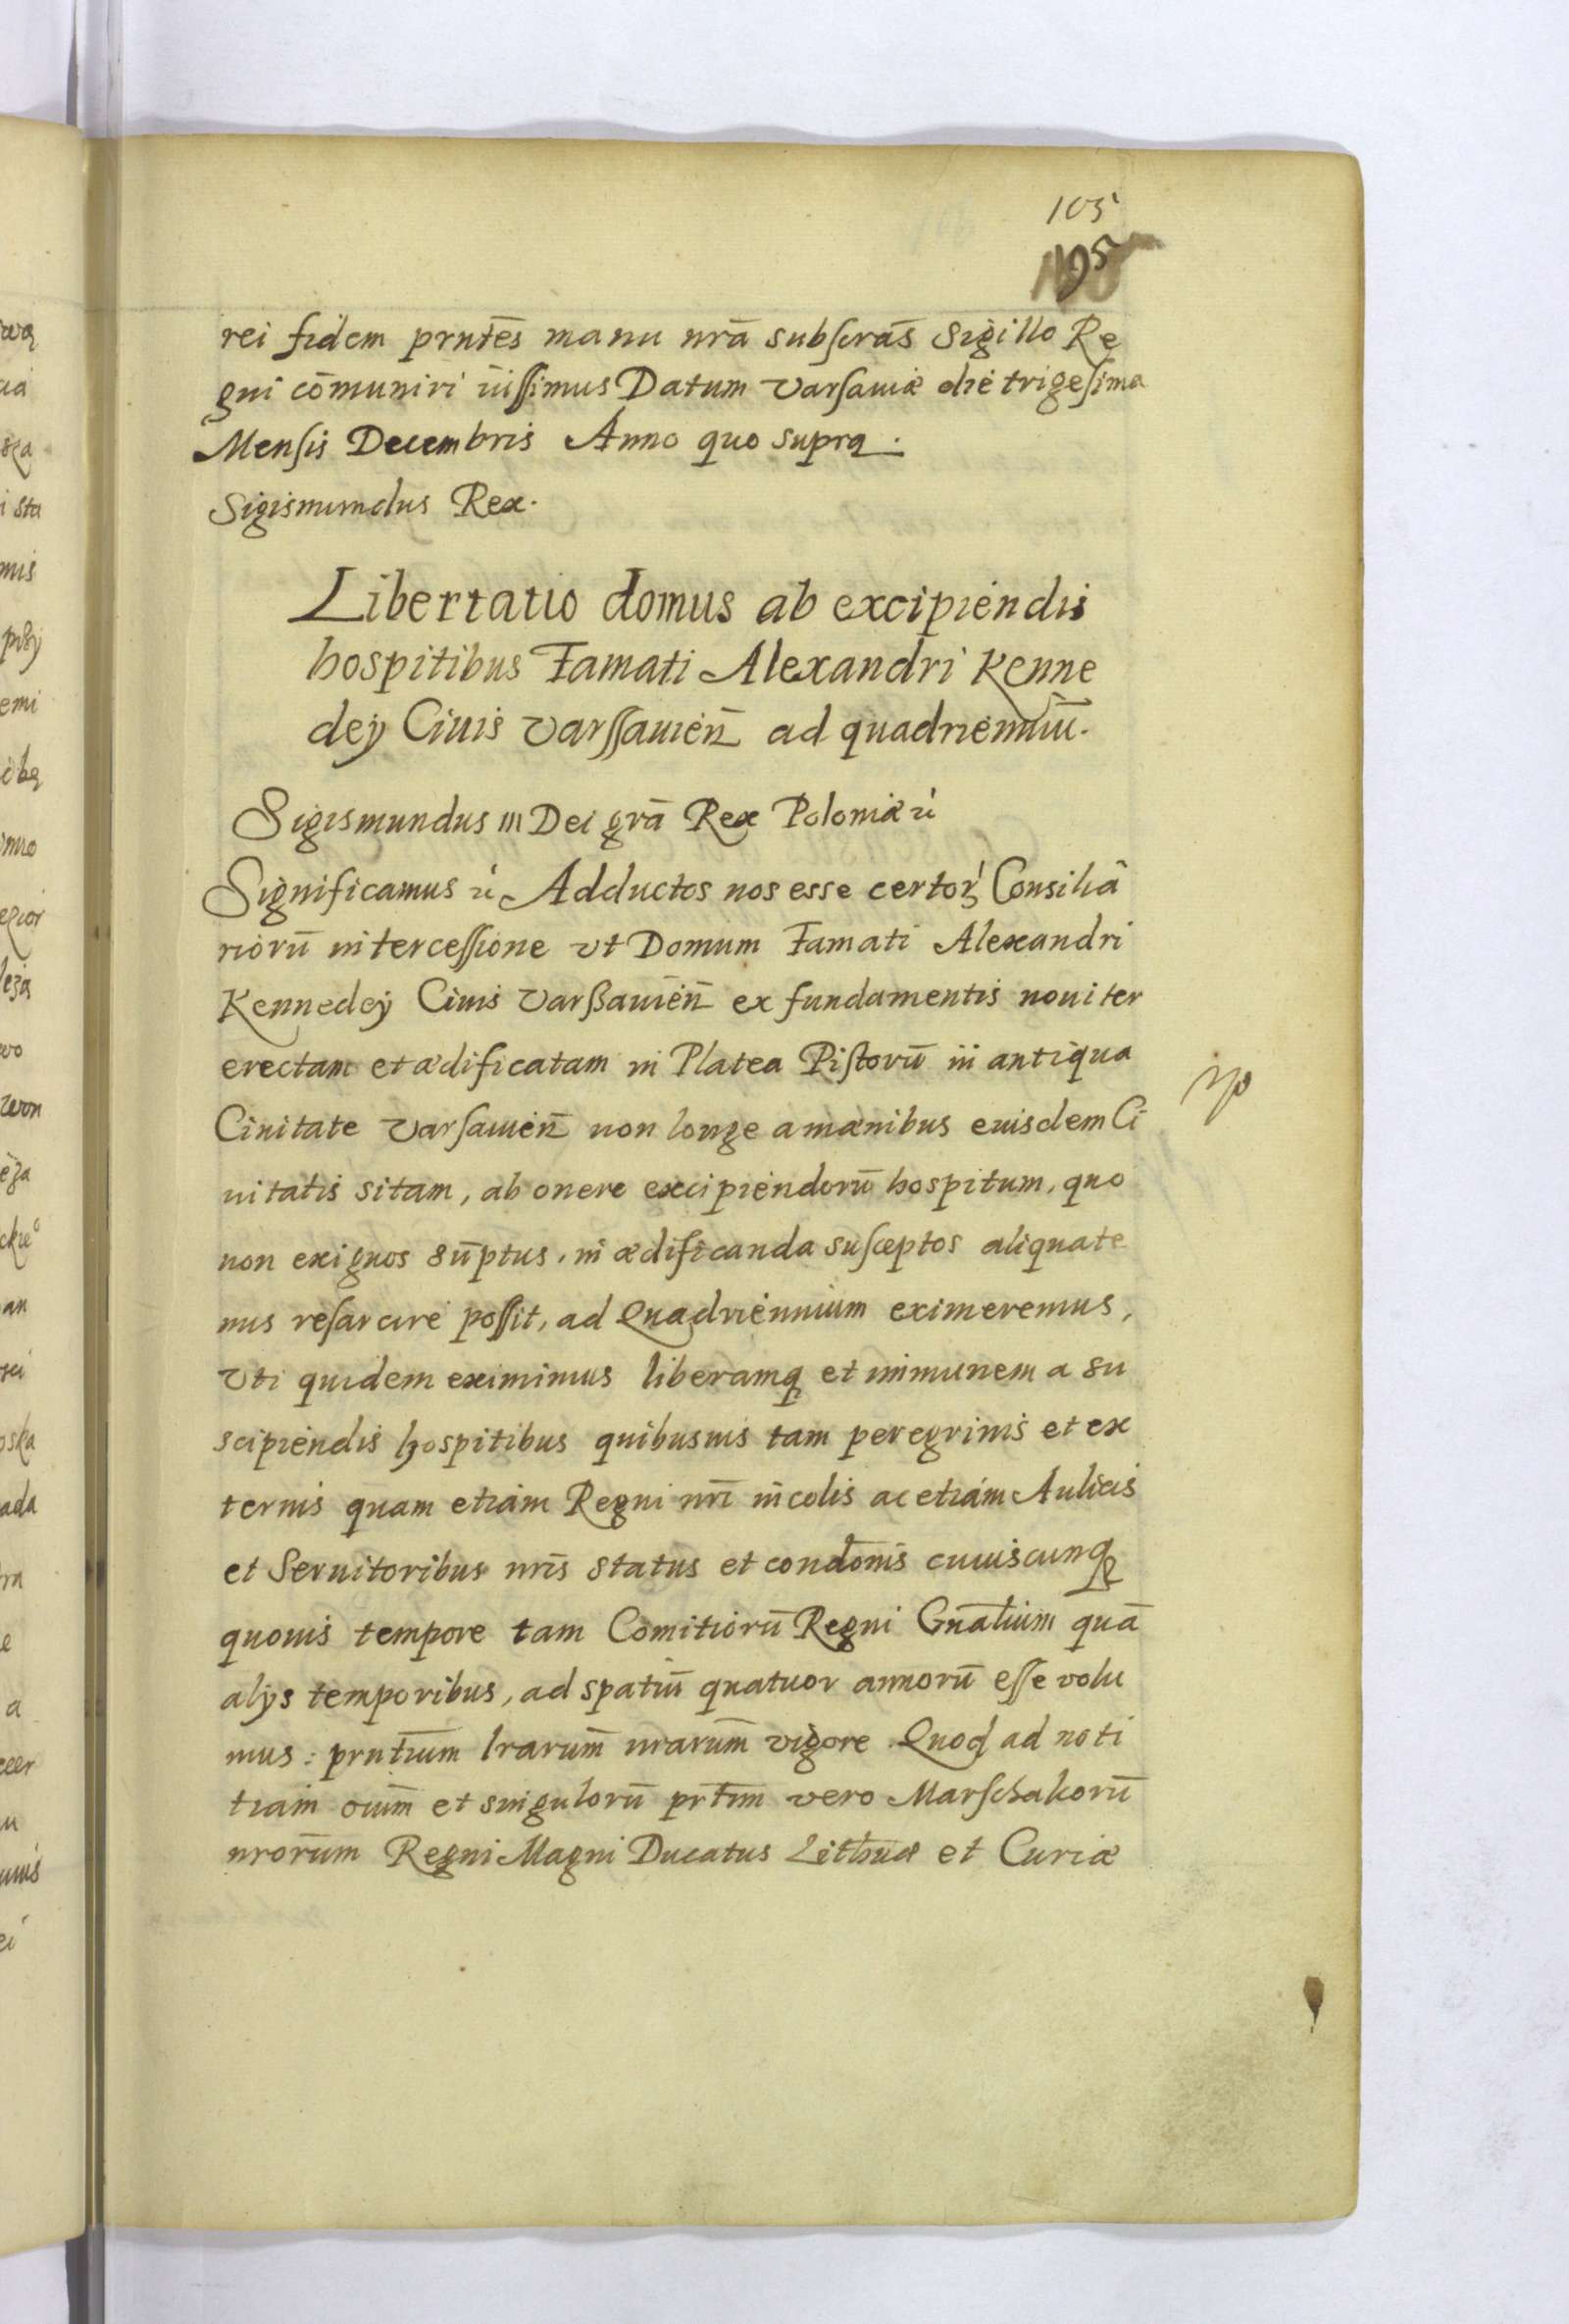 105
195
rei fidem prnte̅s manu nra̅ subscras̅ Sigillo Re
gni co̅muniri iussimus Datum Varsauiæ die trigesima
Mensis Decembris Anno quo supra.
Sigismundus Rex.
Libertatio domus ab excipiendis
hospitibus Famati Alexandri Kenne
deÿ Ciuis Varssauien̅ ad quadrienniu̅.
Sigismundus III Dei gra̅ Rex Poloniæ
Significamus Adductos nos esse certor Consilia
rioru̅ intercessione vt Domum Famati Alexandri
Kennedeÿ Ciuis Varßauien̅ ex fundamentis nouiter
erectam et ædificatam in Platea Pistoru̅ in antiqua
Ciuitate Varsauien̅ non longe a mænibus euisdem Ci
uitatis sitam, ab onere excipiendoru̅ hospitum, quo
non exiguos su̅ptus, in ædificanda susceptos aliquate
nus resarcire possit, ad Quadriennium eximeremus,
Vti quidem eximimus liberamq et immunem a su
scipiendis hospitibus quibusuis tam peregrinis et ex
ternis quam etiam Regni nri̅ incolis ac etiam Aulicis
et Seruitoribus nri̅s status et condonis̅ cuiuscunq
quouis tempore tam Comitioru̅ Regni Gna̅lium qua̅
alÿs temporibus, ad spatiu̅ quatuor annoru̅ esse volu
mus: prntiu̅m lraru̅m nraru̅m vigore. Quod ad noti
tiam oium̅ et singuloru̅ prti̅m vero Marschalkoru̅
nroru̅m Regni Magni Ducatus Lithuæ et Curiæ